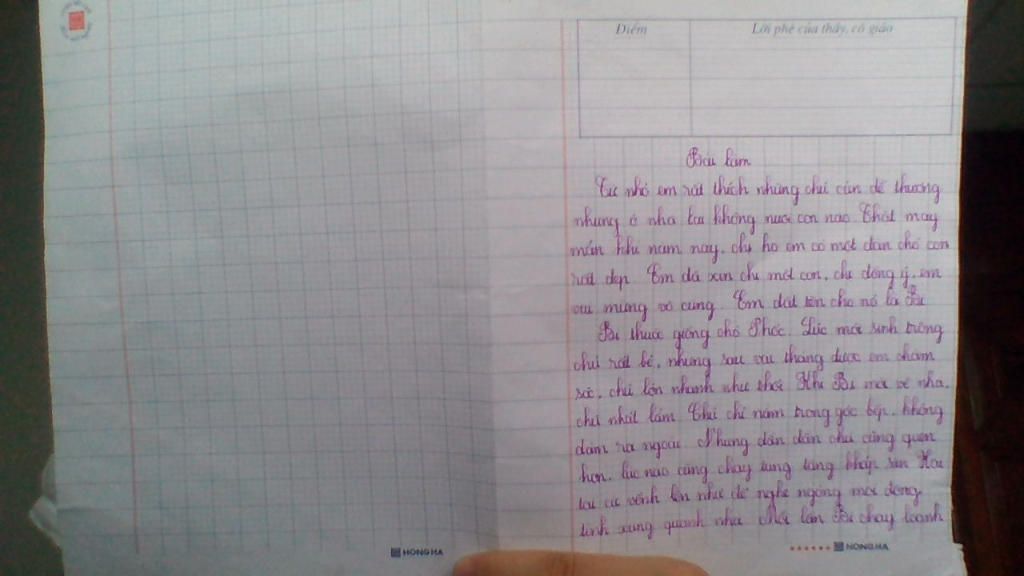 Điểm
Lời phê của thầy, cô giáo
Bài làm
Từ nhỏ em rất thích những chú cún dễ thương
nhưng ở nhà lại không nuôi con nào. Thật may
mắn khi năm nay, chị họ em có một đàn chó con
rất đẹp. Em đã xin chị một con, chị đồng ý, em
vui mừng vô cùng. Em đặt tên cho nó là Bi.
Bi thuộc giống chó Phốc. Lúc mới sinh trông
chú rất bé, nhưng sau vài tháng được em chăm
sóc, chú lớn nhanh như thổi. Khi Bi mới về nhà,
chú nhát lắm. Chú chỉ nằm trong góc bếp, không
dám ra ngoài. Nhưng dần dần chú cũng quen
hơn, lúc nào cũng chạy tung tăng khắp sân. Hai
tai cứ vểnh lên như để nghe ngóng mọi động
tĩnh xung quanh nhà. Mỗi lần Bi chạy loanh
HONG HA
HONG HA